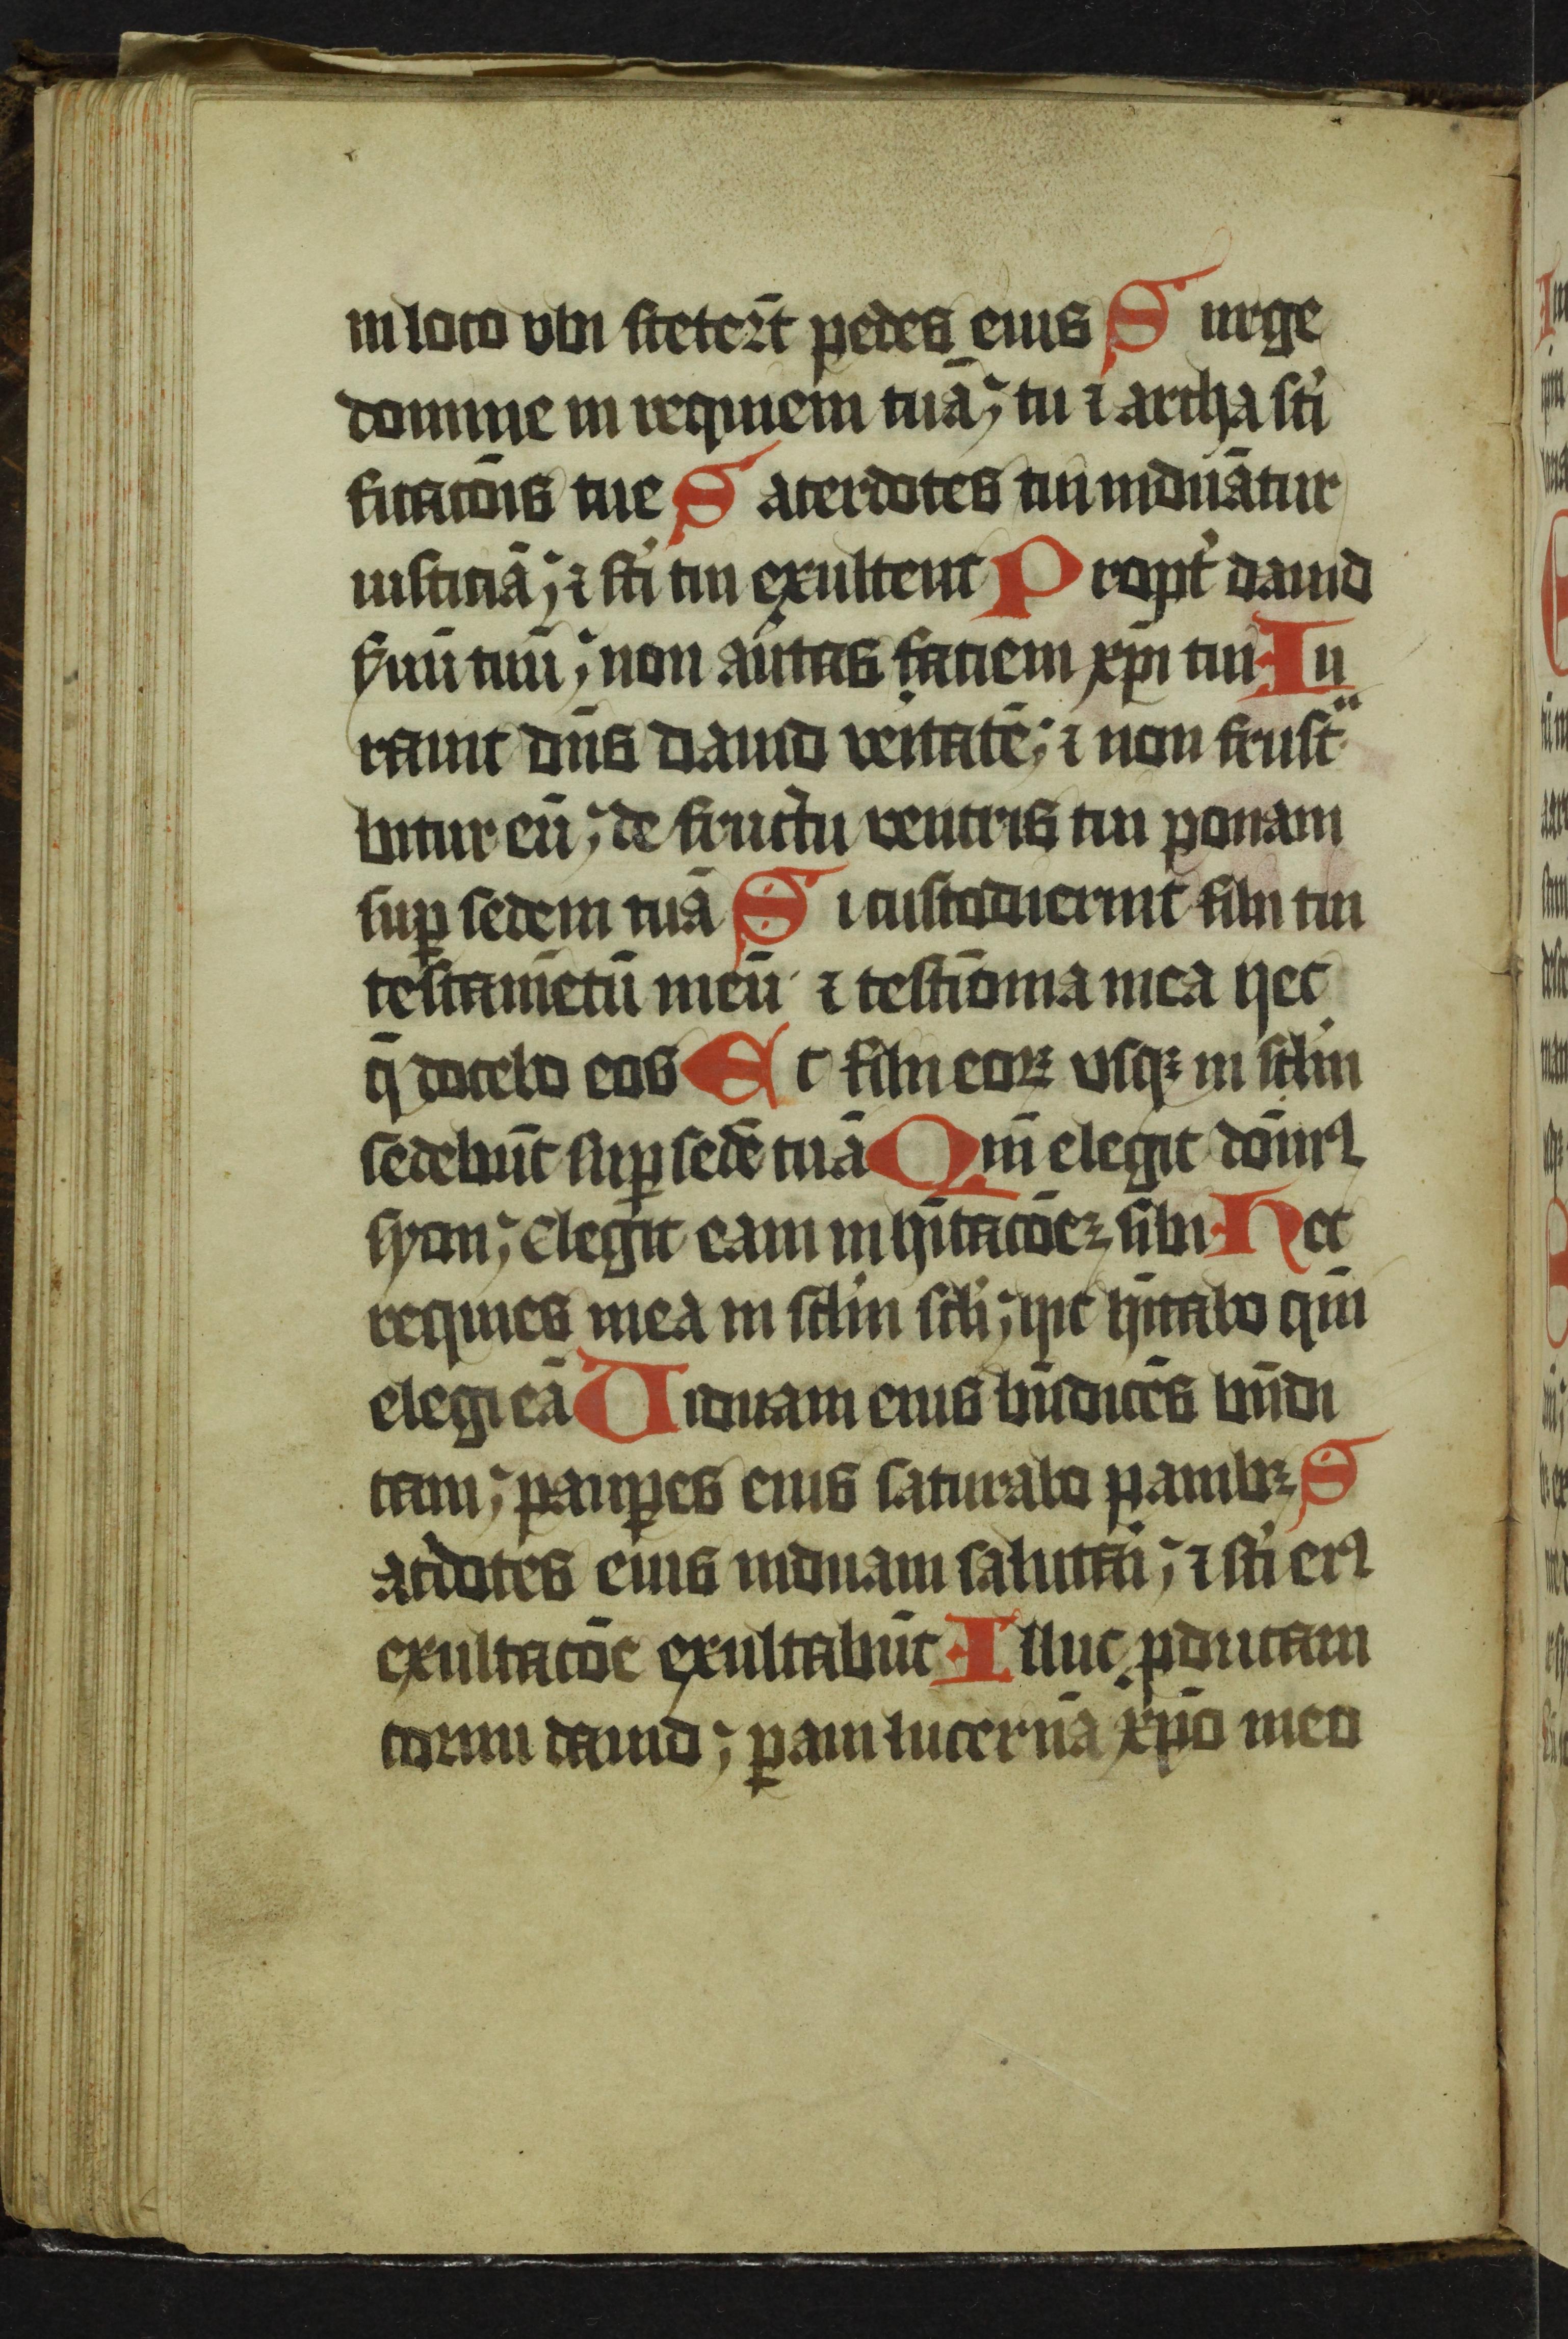 in loco vbi steter̄t pedes eius Surge
domine in requiem tuā; tu ⁊ archa sc̄i
ficac̄ōis tue Sacerdotes tui induātur
iusticiā; ⁊ sc̄i tui exultent Propt̕ dauid
ẜuū tuū; non au̕tas faciem xp̄i tui Iu
rauit dn̄s dauid veritatē; ⁊ non frustᵃ
bitur eū; de fructu ventris tui ponam
suꝑ sedem tuā Si custodierint filii tui
testamētū meū ⁊ testīonia mea hec
q̄ docebo eos Et filii eoꝝ vsqꝫ in sc̄l̕m
sedebūt suꝑ sedē tuā Qm̄ elegit dōinꝰ
syon; Elegit eam in hītac̄ōeꝫ sibi Hec
requies mea in sc̄l̕m sc̄l̕i; hic hītabo qm̄
elegi eā Viduam eius bn̄dicēs bn̄di
cam; pauꝑes eius saturabo panibꝫ S
ac̕dotes eius induam salutari; ⁊ sc̄i eiꝰ
exultac̄ōe exultabūt Illuc ꝓducam
cornu dauid; ꝑaui lucernā xp̄o meo